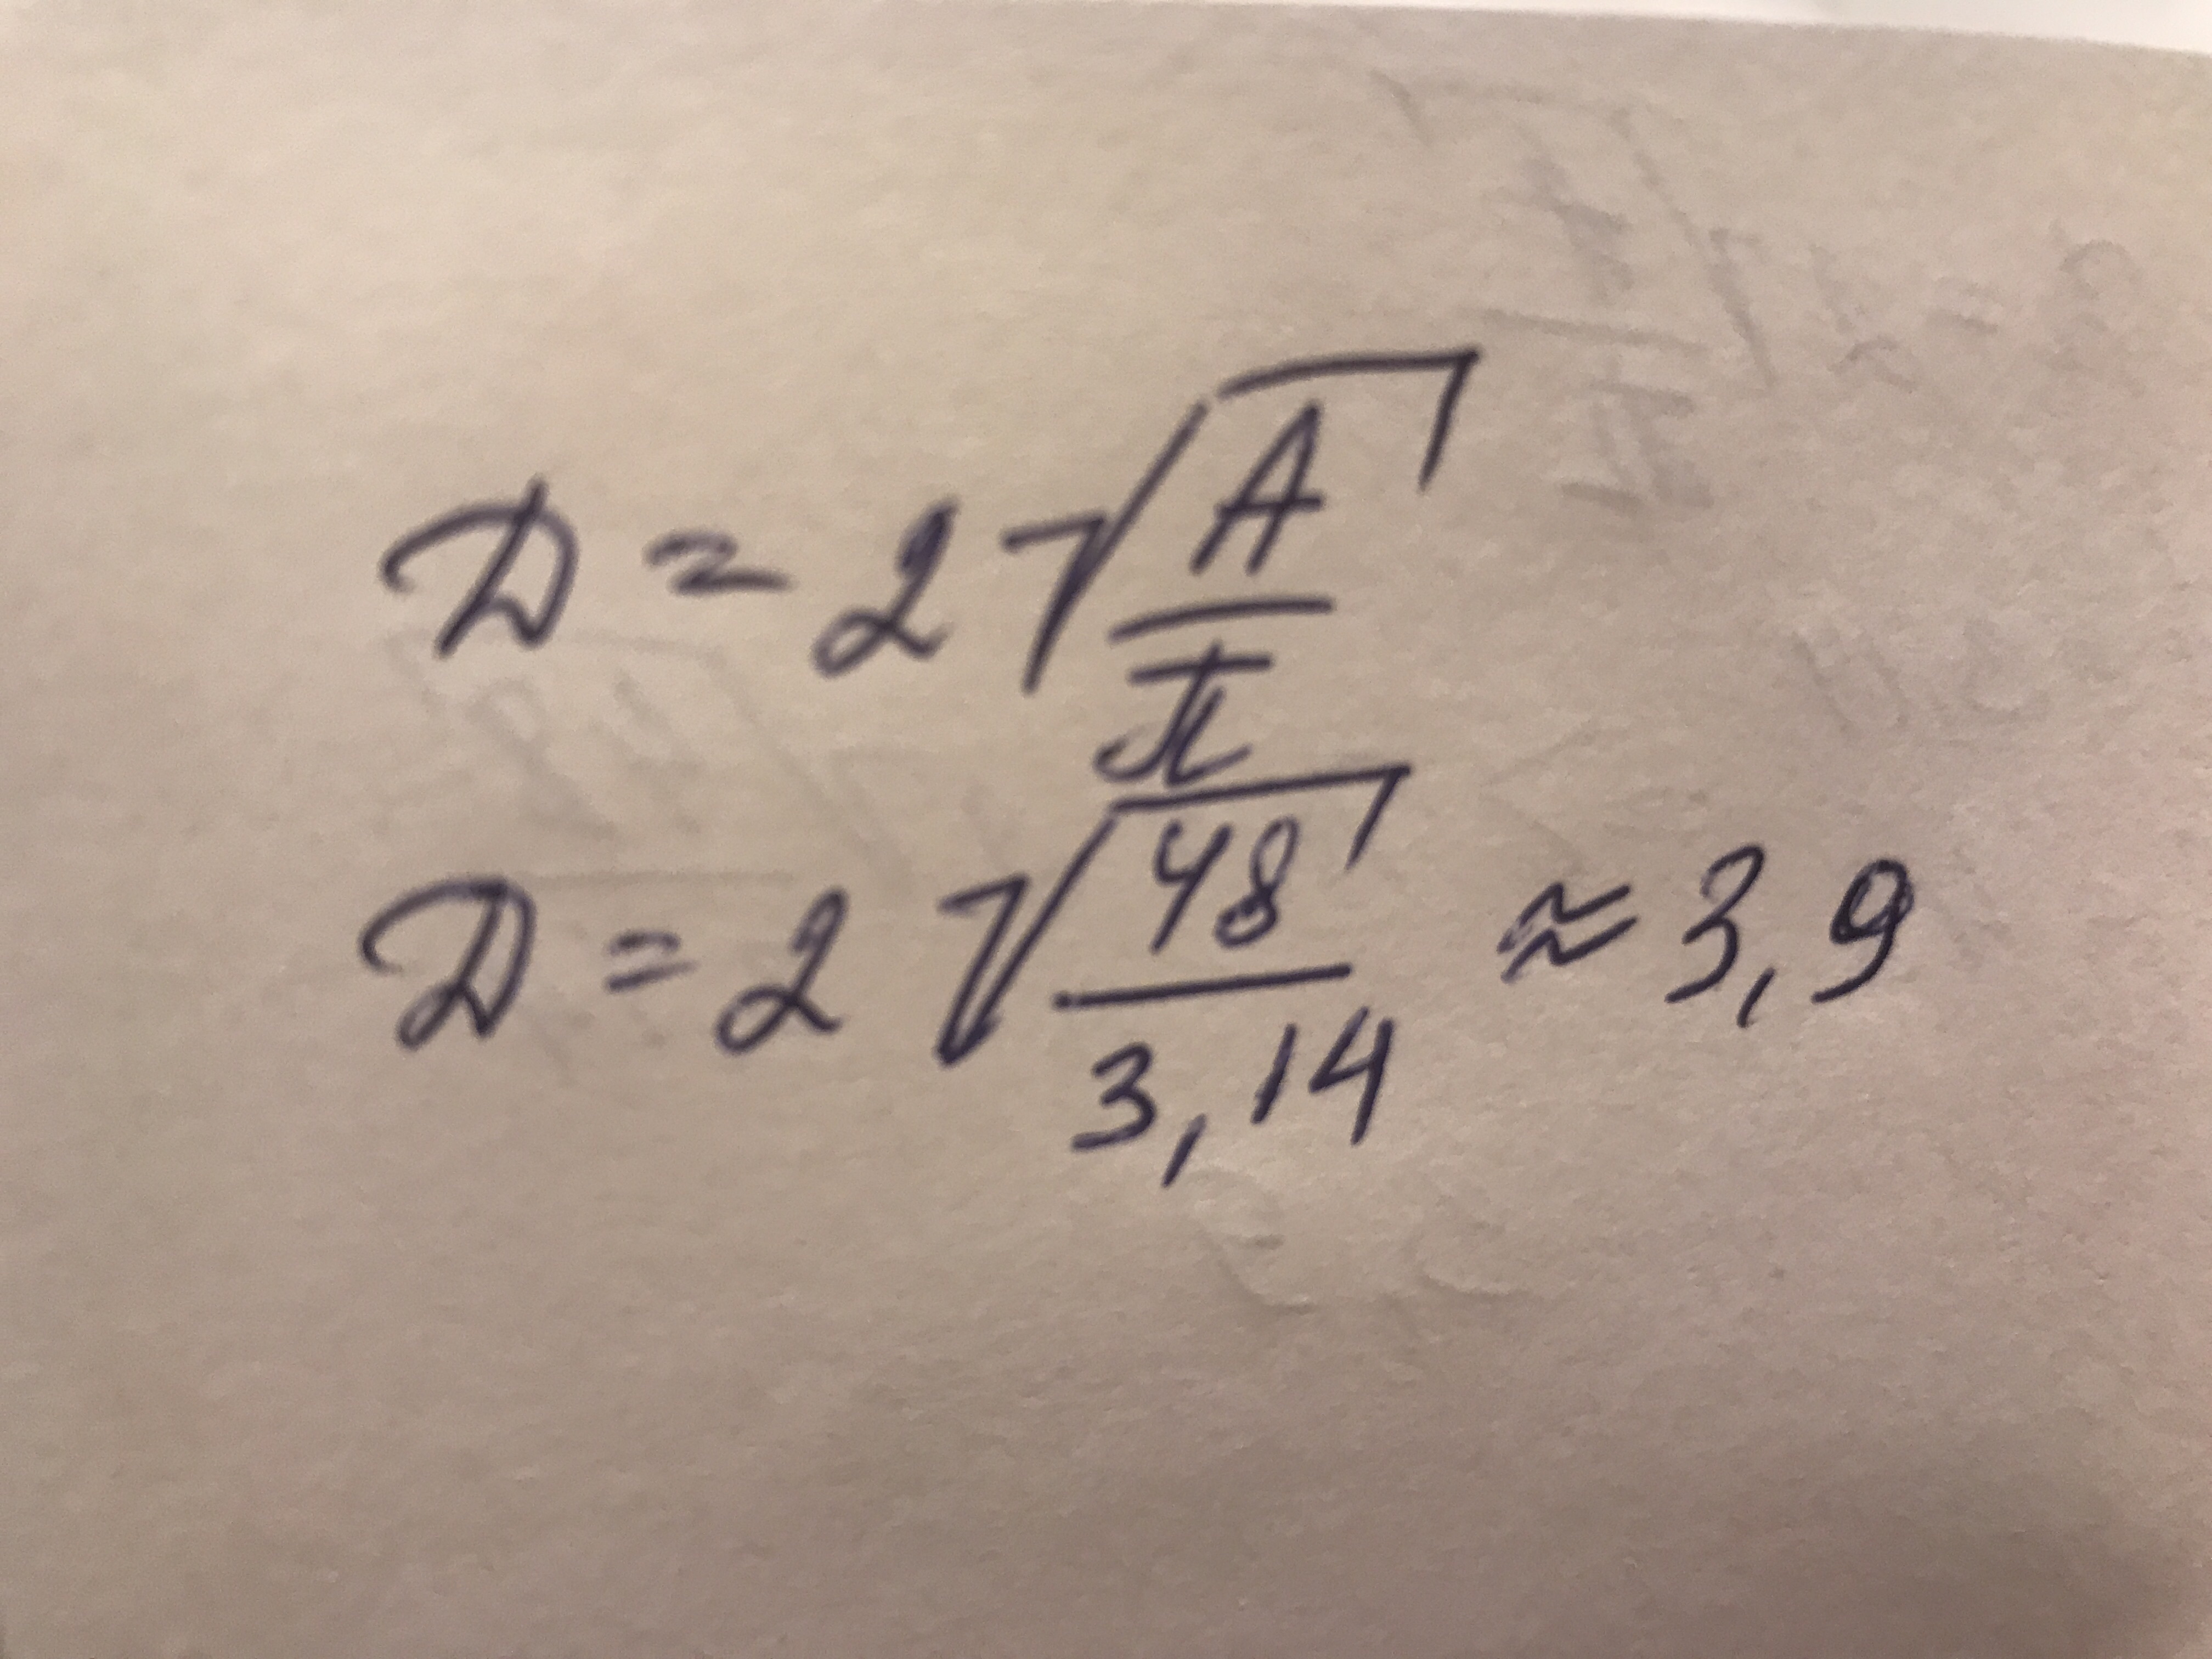 D = 2√(A/π)
D = 2√(48/3,14) ≈ 3,9